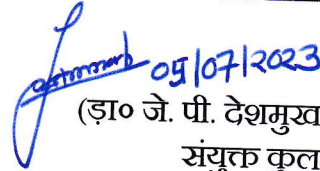 05/07/2023
(ड़ा० जे. पी. देशमुख
संयुक्त कुल